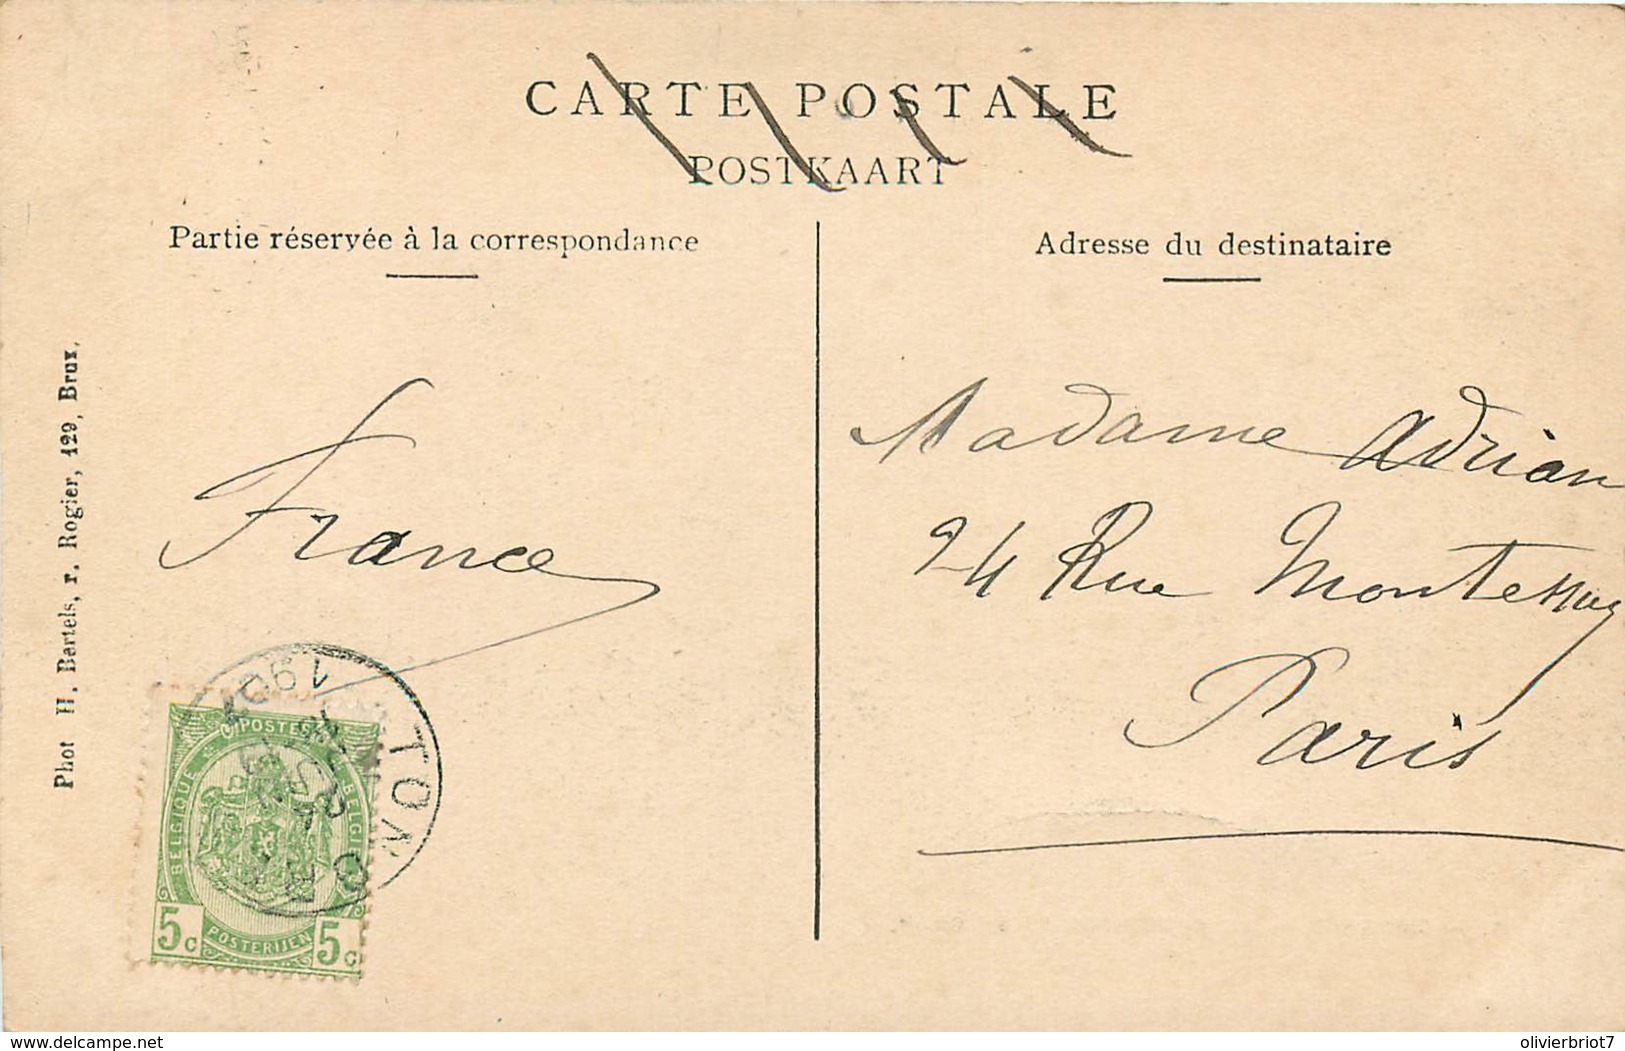 CARTE POSTALE
POSTKAART
Partie réservée à la correspondance
Adresse du destinataire
Phot H. Bartels, r. Rogier, 129, Brux.
France
Madame Adrian
24 Rue Montessuy
Paris
1907
POSTES
BELGIQUE
BELGIE
POSTERIJEN
5c
5c
delcampe.net
olivierbriot7